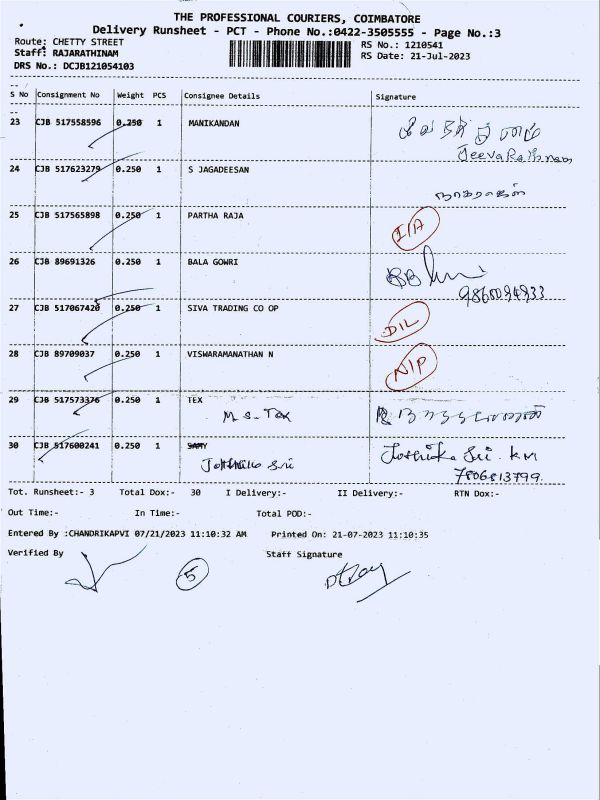 THE PROFESSIONAL COURIERS, COIMBATORE
Delivery Runsheet - PCT - Phone No.:0422-3505555 - Page No.:3
Route: CHETTY STREET
Staff: RAJARATHINAM
DRS No.: DCJB121054103
RS No.: 1210541
RS Date: 21-Jul-2023
S No Consignment No Weight PCS Consignee Details Signature
23 CJB 517558596 0.250 1 MANIKANDAN
JeevaRathnam
24 CJB 517623279 0.250 1 S JAGADEESAN
நாகராகன்
25 CJB 517565898 0.250 1 PARTHA RAJA I/A
26 CJB 89691326 0.250 1 BALA GOWRI
27 CJB 517067420 0.250 1 SIVA TRADING CO OP D/L
28 CJB 89709037 0.250 1 VISWARAMANATHAN N N/P
29 CJB 517573376 0.250 1 TEX
M.S. Tex
30 CJB 517600241 0.250 1 SAMY
Jothika Sri . K.M
7806813799.
Tot. Runsheet:- 3 Total Dox:- 30 I Delivery:- II Delivery:- RTN Dox:-
Out Time:- In Time:- Total POD:-
Entered By :CHANDRIKAPVI 07/21/2023 11:10:32 AM Printed On: 21-07-2023 11:10:35
Verified By Staff Signature
5